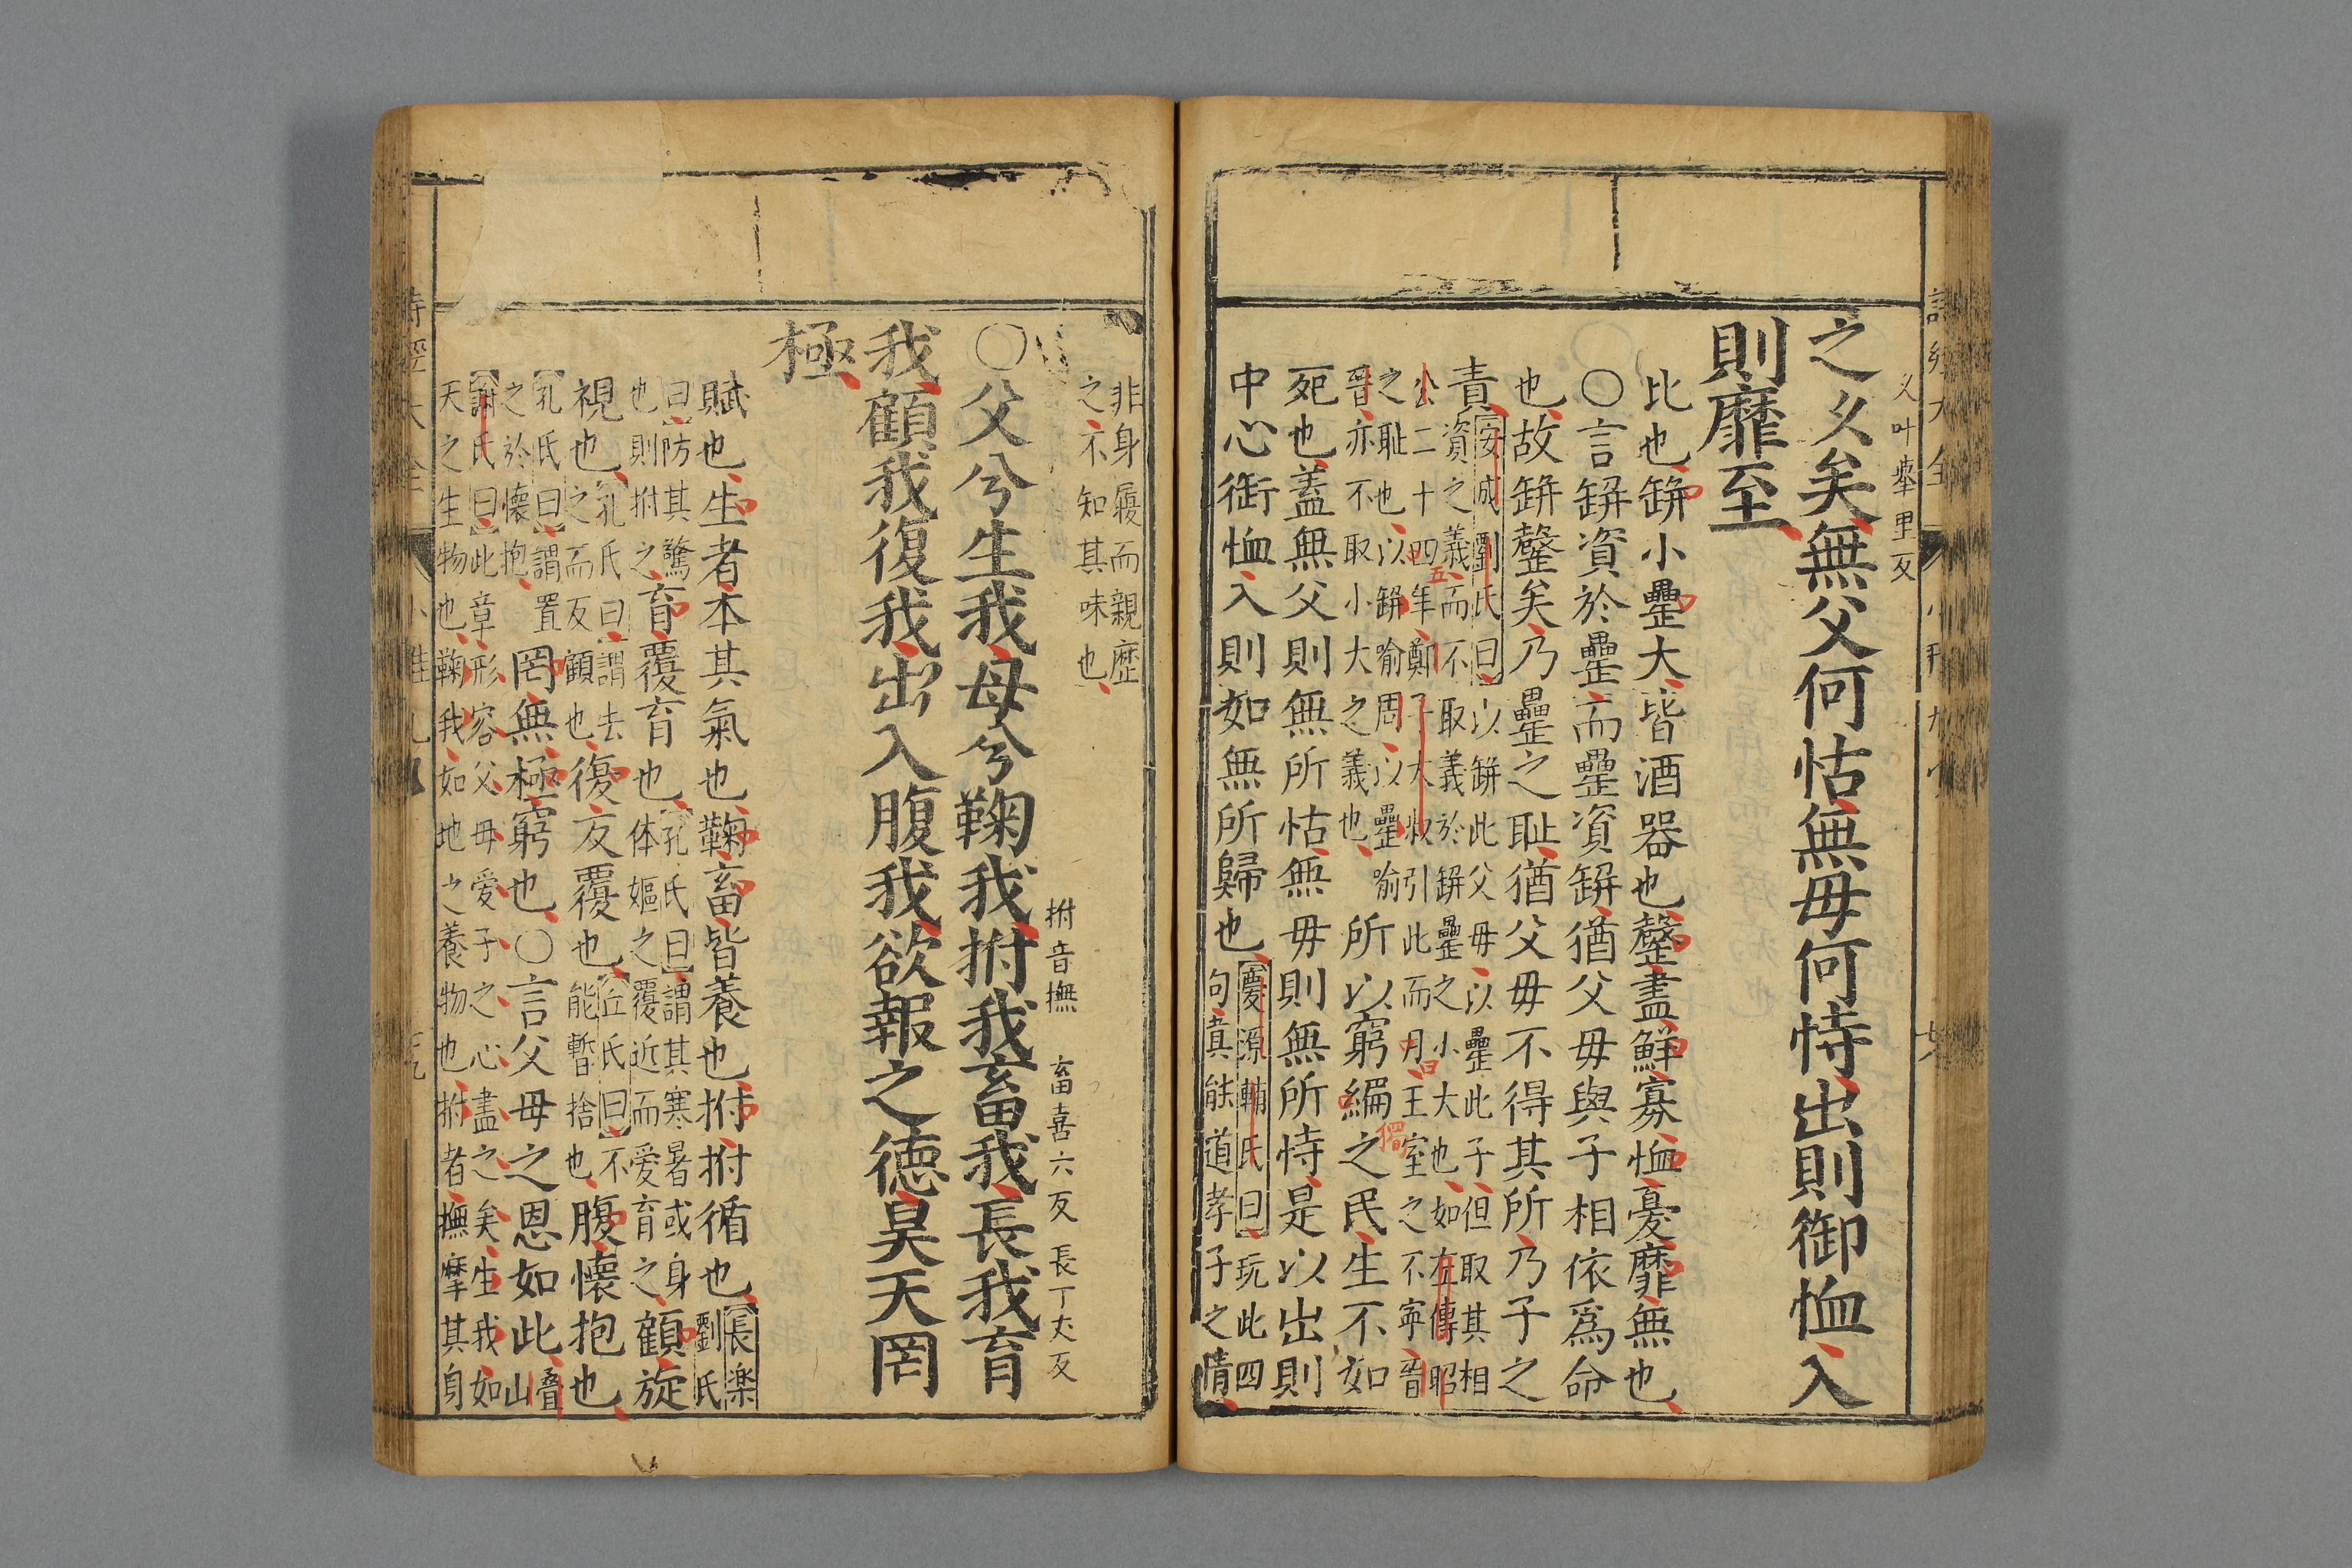 久叶舉里反
之久矣無父何怙無母何恃出則御恤入
則靡至
比也缾小罍大皆酒器也罄盡鮮寡恤憂靡無也
○言缾資於罍而罍資缾猶父母與子相依爲命
也故缾罄矣乃罍之耻猶父母不得其所乃子之
責
安成劉氏曰以缾此父母以罍此子但取其相
資之義而不取義於缾罍之小大也如左傳昭
公二十四年鄭子大叔引此而曰王室之不寧晉
之耻也以缾喻周以罍喻
晉亦不取小大之義也
所以窮獨之民生不如
死也蓋無父則無所怙無母則無所恃是以出則
中心銜恤入則如無所歸也
慶源輔氏曰玩此四
句真能道孝子之情
非身履而親歷
之不知其味也
拊音撫 畜喜六反 長丁丈反
○父兮生我母兮鞠我拊我畜我長我育
我顧我復我出入腹我欲報之德昊天罔
極
賦也生者本其氣也鞠畜皆養也拊拊循也
長楽
劉氏
曰防其驚
也則拊之
育覆育也
孔氏曰謂其寒暑或身
体嫗之覆近而愛育之
顧旋
視也
孔氏曰謂去
之而反顧也
復反覆也
丘氏曰不
能暫捨也
腹懷抱也
孔氏曰謂置
之於懷抱
罔無極窮也○言父母之恩如此
疊
山
謝氏曰此章形容父母愛子之心盡之矣生我如
天之生物也鞠我如地之養物也拊者撫摩其身